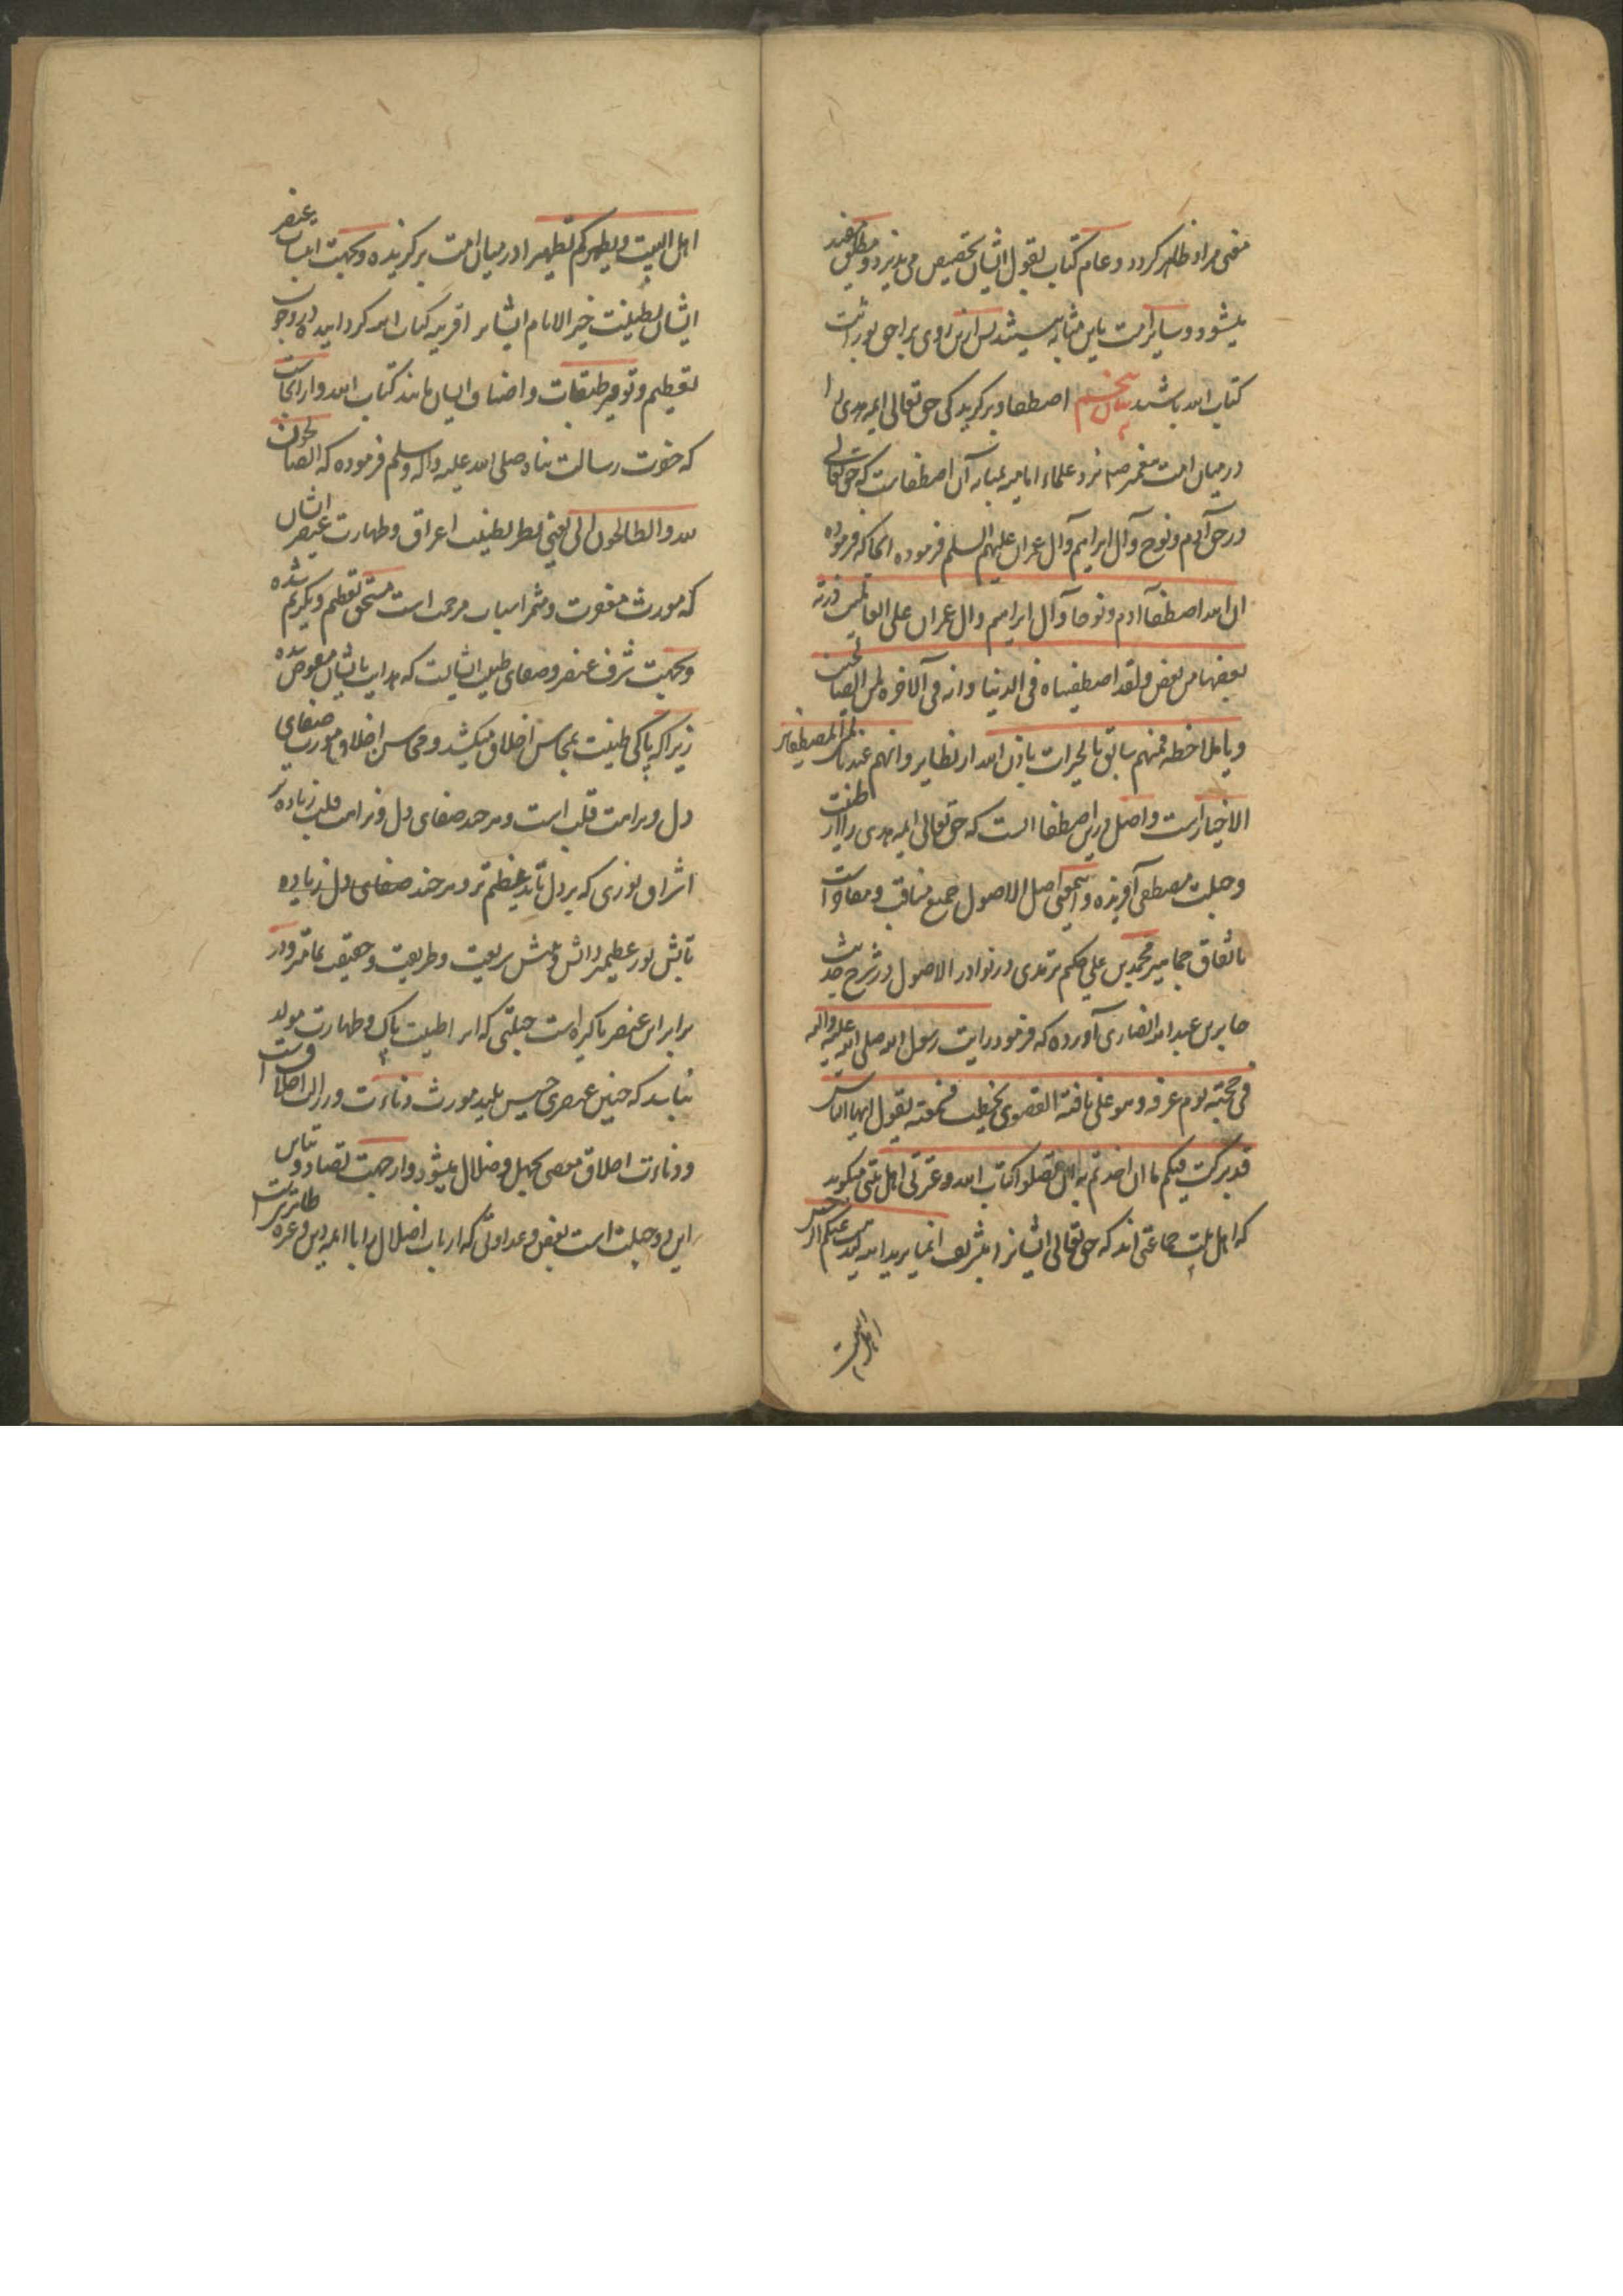 معنی مراد ظاهر کردد و عام کتاب بقول ایشان تخصیص می پذیرد و مطلق مقید
میشود و سایر امت باین مثابه نیستند پس ازین روی براحق بوراثت
کتاب الله باشند بیان پنجم اصطفا و برکزیدکی حق تعالی ایمه هدی را
در میان امت پیغمبر ص نزد علماء امامیه بمثابه آن اصطفاست که حق تعالی
در حق آدم و نوح و آل ابراهیم و آل عمران علیهم السلم فرموده انجا که فرموده
ان الله اصطفی آدم و نوحا و آل ابراهیم و ال عمران علی العالمین ذریة
بعضها من بعض و لقد اصطفیناه فی الدنیا و انه فی الآخرة لمن الصالحین
و فمنهم سابق بالخیرات باذن الله از نظایر و انهم عندنا لمن المصطفین
الاخیار است و اصل درین اصطفا انست که حق تعالی ایمه هدی را از طینت
و جبلت مصطفی آفریده و این معنی اصل الاصول جمیع مناقب و
باتفاق جماهیر محمد بن علی حکیم ترمذی در نوادر الاصول در شرح حدیث
جابر بن عبد الله انصاری آورده که فرمود رایت رسول الله صلی الله علیه واله
فی حجته یوم عرفه و هو علی ناقته القصوی یخطب فسمعته یقول ایها الناس
قد ترکت فیکم ما ان اخذتم به لن تضلوا کتاب الله و عترتی اهل بیتی میکوید
که اهل بیت جماعتی اند که حق تعالی ایشانرا بتشریف انما یرید الله لیذهب عنکم الرجس
اهل البیت
اهل البیت و یطهرکم تطهیرا در میان امت برکزیده و بجهت عنصر
ایشان بطینت خیر الانام ایشانرا قرینه کتاب الله کردانیده در وجوب
تعظیم و توقیر طبقات و اصناف ایشان مانند کتاب الله و از انجاست
که حضرت رسالت پناه صلی الله علیه و اله و سلم فرموده که الصالحون
لله و الطالحون لی یعنی نظر بطینت اعراق و طهارت عنصر ایشان
که مورث مغفرت و مثمر اسباب مرحمت است مستحق تعظیم و تکریم شده
و بجهت شرف عنصر و صفای طینت ایشانست که هدایت بایشان مفوض شده
زیرا که پاکی طینت بمحاسن اخلاق میکشد و محاسن اخلاق مورث صفای
دل و نزاهت قلب است و هرچند صفای دل و نزاهت قلب زیاده تر
اشراق نوری که بر دل تابد عظیم تر و هرچند صفای دل زیاده
تابش نور عظیمتر دانش و بینش شریعت و طریقت و حقیقت تمامتر و در
برابر این عنصر پاکیزه است جبلتی که از طینت پاک و طهارت مولد
نباشد که چنین عنصری خسیس پلید مورث دناءت و رذالت اخلاقست
و دناءت اخلاق مفضی بجهل و ضلال میشود و از جهت تضاد و تباین
این دو جبلت است بغض و عداوتی که ارباب اضلال را با ایمه دین و عتره طاهرینست